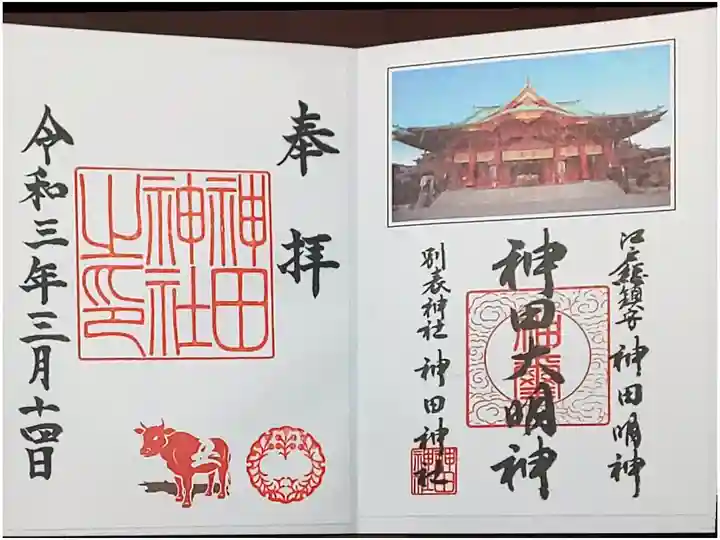 江戸総鎮守 神田明神
神田大明神
別表神社 神田神社
神田
神社
奉拝
神田
神社
之印
令和三年三月十四日